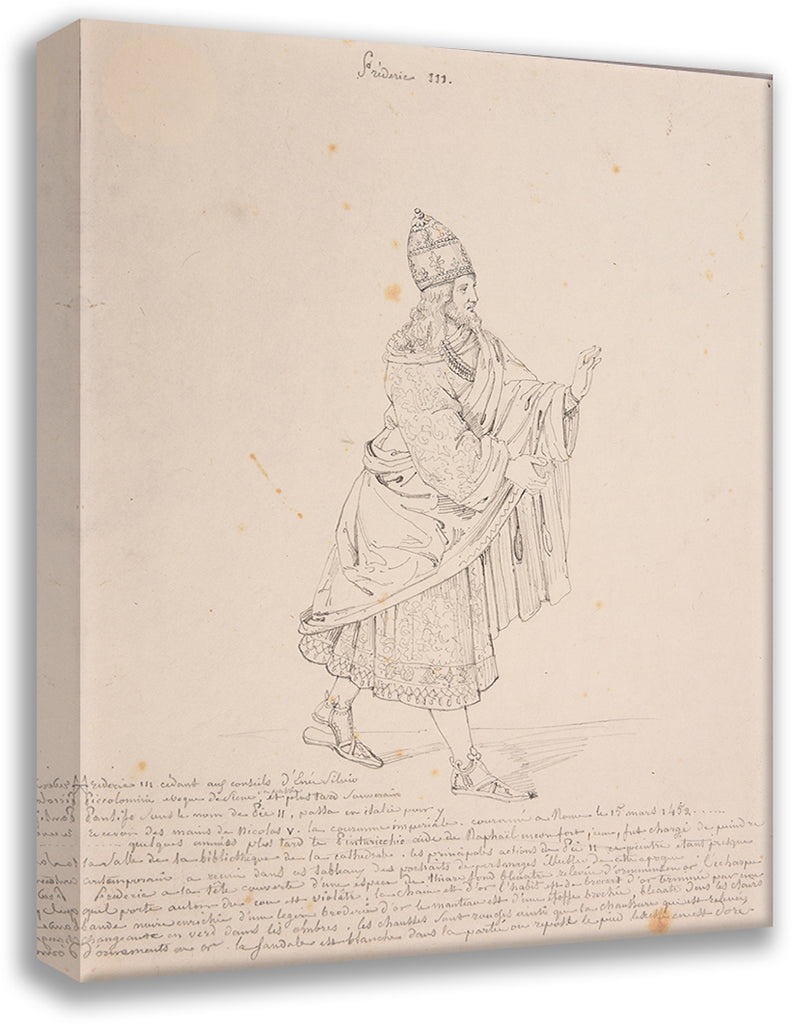 Fréderic III.
Frederic III cédant aux conseils d'Ené Silvio
Piccolomini eveque de Siene, et plus tard Souverain
Pontife sous le nom de Pie II, passa en italie pour y
recevoir des mains de Nicolas V. la couronne imperiale. couronné a Rome le 15 mars 1452.....
quelques années plus tard le Pinturicchio aidé de Raphaël encore fort jeune, fut chargé de peindre
la Salle de la bibliothèque de la cathedrale. les principales actions de Pie II
contemporain a reuni dans ces tableaux des portraits de personages illustres de cette epoque
Frederic a la tête couverte d'une espece de thiare fond bleuatre relevée d'ornemens en or l'echarpe
qu'il porte autour du cou est violette; la chaine est d'or l'habit est de brocart d'or terminé par une
bande noire enrichie d'une legere broderie d'or le manteau est d'une étoffe brochée, bleuatre dans les clairs
changeante en verd dans les ombres. les chausses sont rouges ainsi que la chaussure qui est relevée
d'ornements en or. la sandale est blanche dans la partie ou repose le pied en est doré